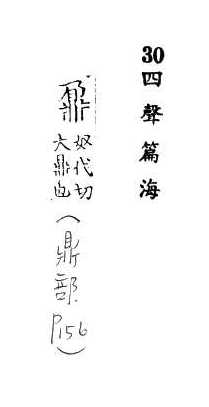 30四聲篇海
鼐
奴代切
大鼎也
(鼎部P156)